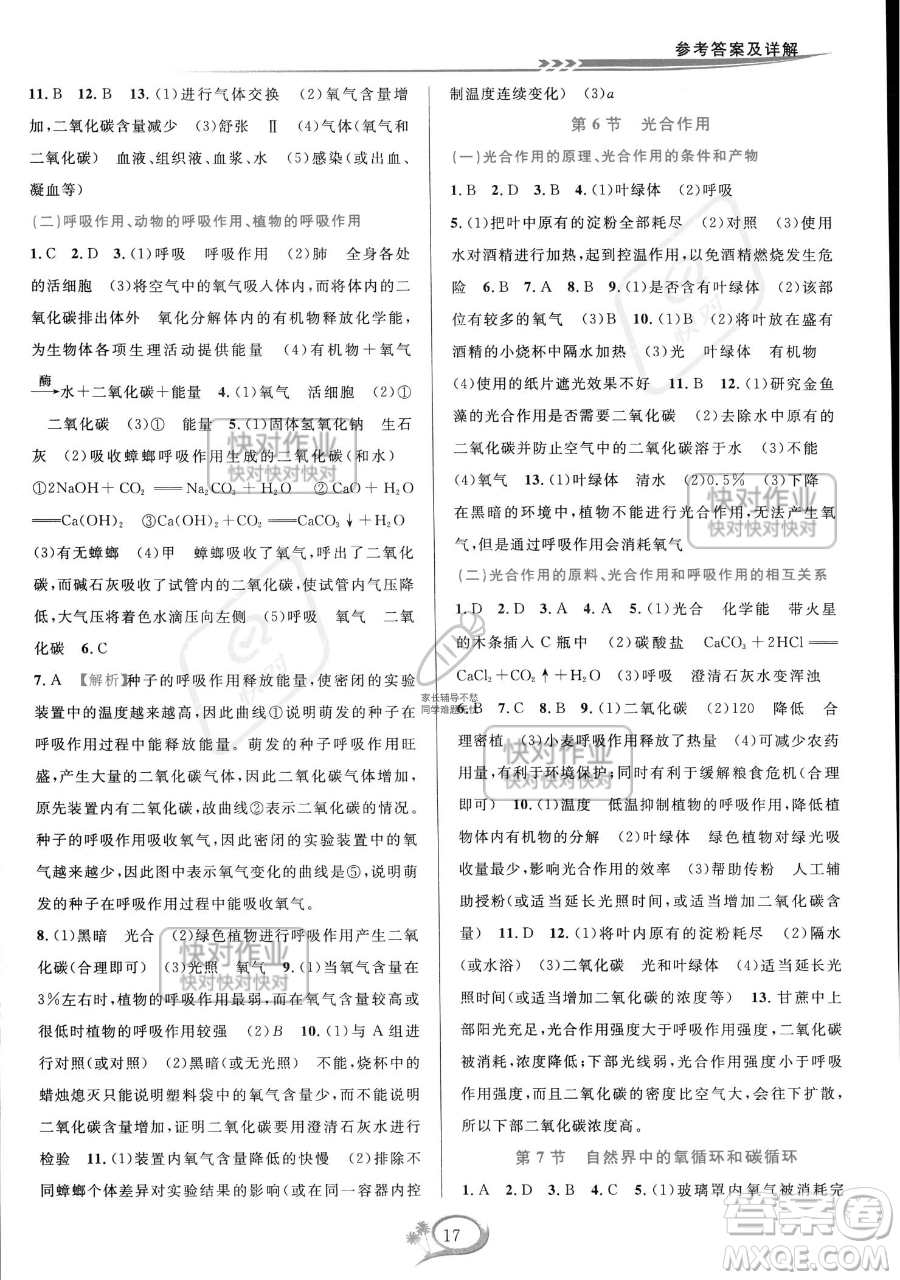 参考答案及详解
11.B 12.B 13.(1)进行气体交换 (2)氧气含量增
加,二氧化碳含量减少 (3)舒张 Ⅱ (4)气体(氧气和
二氧化碳) 血液、组织液、血浆、水 (5)感染(或出血、
凝血等)
(二)呼吸作用、动物的呼吸作用、植物的呼吸作用
1.C 2.D 3.(1)呼吸 呼吸作用 (2)肺 全身各处
的活细胞 (3)将空气中的氧气吸入人体、将体内的二
氧化碳排出体外 氧化分解体内的有机物释放化学能,
为生物体各项生理活动提供能量 (4)有机物+氧气
酶
→水+二氧化碳+能量 4.(1)氧气 活细胞 (2)①
二氧化碳 (3)① 能量 5.(1)固体氢氧化钠 生石
灰 (2)吸收蟑螂呼吸作用生成的二氧化碳(和水)
①2NaOH+CO₂══Na₂CO₃+H₂O ②CaO+H₂O
══Ca(OH)₂ ③Ca(OH)₂+CO₂══CaCO₃↓+H₂O
(3)有无蟑螂 (4)甲 蟑螂吸收了氧气,呼出了二氧化
碳,而碱石灰吸收了试管内的二氧化碳,使内压降
低,大气压将着色水滴压向左侧 (5)呼吸 氧气 二氧
化碳 6.C
7.A 【解析】种子的呼吸作用释放能量,使密闭的实验
装置中的温度越来越高。因此,曲线①说明萌发的种子在
呼吸作用过程中能释放能量。萌发的种子呼吸作用旺
盛,产生大量的二氧化碳气体,使二氧化碳增加,但由于
原先装置内有二氧化碳,故曲线②表示二氧化碳的情况。
种子的呼吸作用吸收氧气,使密闭的实验装置中的氧
气越来越少。因此图中表示氧气变化的曲线是⑤,说明
萌发的种子在呼吸作用过程中能吸收氧气。
8.(1)黑暗 光合 (2)绿色植物进行呼吸作用产生二氧
化碳(合理即可) (3)光照 氧气 9.(1)当氧气含量在
3%左右时,植物的呼吸作用最弱;而在氧气含量较高或
很低时植物的呼吸作用较强 (2)B 10.(1)与A组进
行对照(或对照) (2)黑暗(或无光) 不能,烧杯中的
蜡烛熄灭只能说明塑料袋中的氧气含量少,而不能说明
二氧化碳含量增加,证明二氧化碳需要用澄清石灰水进行
检验 11.(1)装置内氧气含量降低的快慢 (2)排除不
同蟑螂个体差异对实验结果的影响(或在同一容器内控
制温度连续变化) (3)a
第6节 光合作用
(一)光合作用的原理、光合作用的条件和产物
1.B 2.D 3.B 4.(1)叶绿体 (2)呼吸
5.(1)把叶中原有的淀粉全部耗尽 (2)对照 (3)使用
水对酒精进行加热,起到控温作用,以免酒精燃烧发生危
险 6.B 7.A 8.B 9.(1)是否含有叶绿体 (2)该部
位有较多的氧气 10.(1)B (2)将叶放在盛有
酒精的小烧杯中隔水加热 (3)光 叶绿体 有机物
(4)使用的纸片遮光效果不好 11.B 12.(1)研究金鱼
藻的光合作用是否需要二氧化碳 (2)去除水中原有的
二氧化碳并防止空气中的二氧化碳溶于水 (3)不能
(4)氧气 13.(1)叶绿体 清水 (2)0.5% (3)下降
在黑暗的环境中,植物不能进行光合作用,无法产生氧
气,但是通过呼吸作用会消耗氧气
(二)光合作用的原料、光合作用和呼吸作用的相互关系
1.D 2.A 3.D 4.D 5.(1)光合 化学能 带火星
的木条插入C瓶中 (2)碳酸盐 CaCO₃+2HCl══
CaCl₂+CO₂↑+H₂O (3)呼吸 澄清石灰水变浑浊
6.B 7.C 8.B 9.(1)二氧化碳 (2)120 降低 合
理密植 (3)小麦呼吸作用释放了热量 (4)可减少农药
用量,有利于环境保护;同时有利于缓解粮食危机(合理
即可) 10.(1)温度 低温抑制植物的呼吸作用,降低植
物体内有机物的分解 (2)叶绿体 绿色植物对绿光吸
收量最少,影响光合作用的效率 (3)帮助传粉 人工辅
助授粉(或适当延长光照时间、适当增加二氧化碳的含
量) 11.D 12.(1)将叶内原有的淀粉耗尽 (2)隔水
(或水浴) (3)二氧化碳 光和叶绿体 (4)适当延长光
照时间(或适当增加二氧化碳的浓度等) 13.甘蔗中上
部阳光充足,光合作用强度大于呼吸作用强度,二氧化碳
被消耗,浓度降低;下部光线弱,光合作用强度小于呼吸
作用强度,产生的二氧化碳的密度比空气大,往下扩散,
所以下部二氧化碳浓度高。
第7节 自然界中的氧循环和碳循环
1.A 2.D 3.B 4.C 5.(1)玻璃罩内氧气被消耗完
17
快对作业
快对快对快对
快对作业
快对快对快对
快对作业
快对快对快对
快对作业
快对快对快对
快对
家长辅导不愁
同学难题无忧
答案圈
MXQE.COM